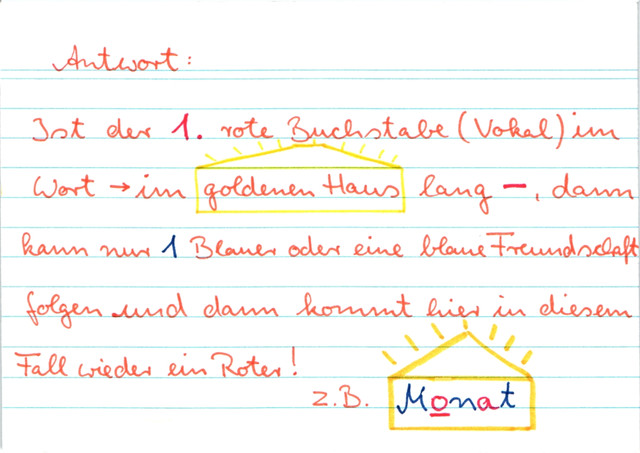 Antwort:
Ist der 1. rote Buchstabe (Vokal) im
Wort → im goldenen Haus lang –, dann
kann nur 1 Blauer oder eine blaue Freundschaft
folgen und dann kommt hier in diesem
Fall wieder ein Roter!
z.B. Monat